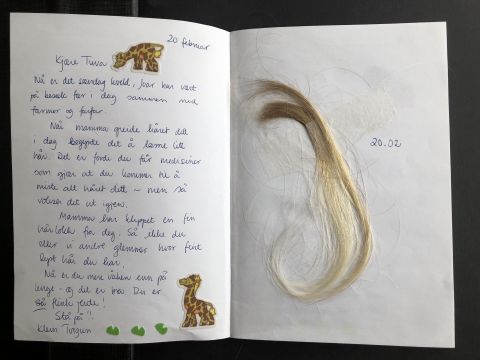 20 februar
Kjære Tuva
Nå er det søndag kveld, Ivar har vært
på besøk her i dag sammen med
farmor og farfar.
Når mamma greide håret ditt
i dag begynte det å løsne litt
hår. Det er fordi du får medisiner
som gjør at du kommer til å
miste alt håret ditt – men så
vokser det ut igjen.
Mamma har klippet en fin
hårlokk fra deg. Så ikke du
eller vi andre glemmer hvor fint
lyst hår du har.
Nå er du mere våken enn på
lenge – og det er bra. Du er
så flink jente!
Stå på!!
Klem Torgun
20.02